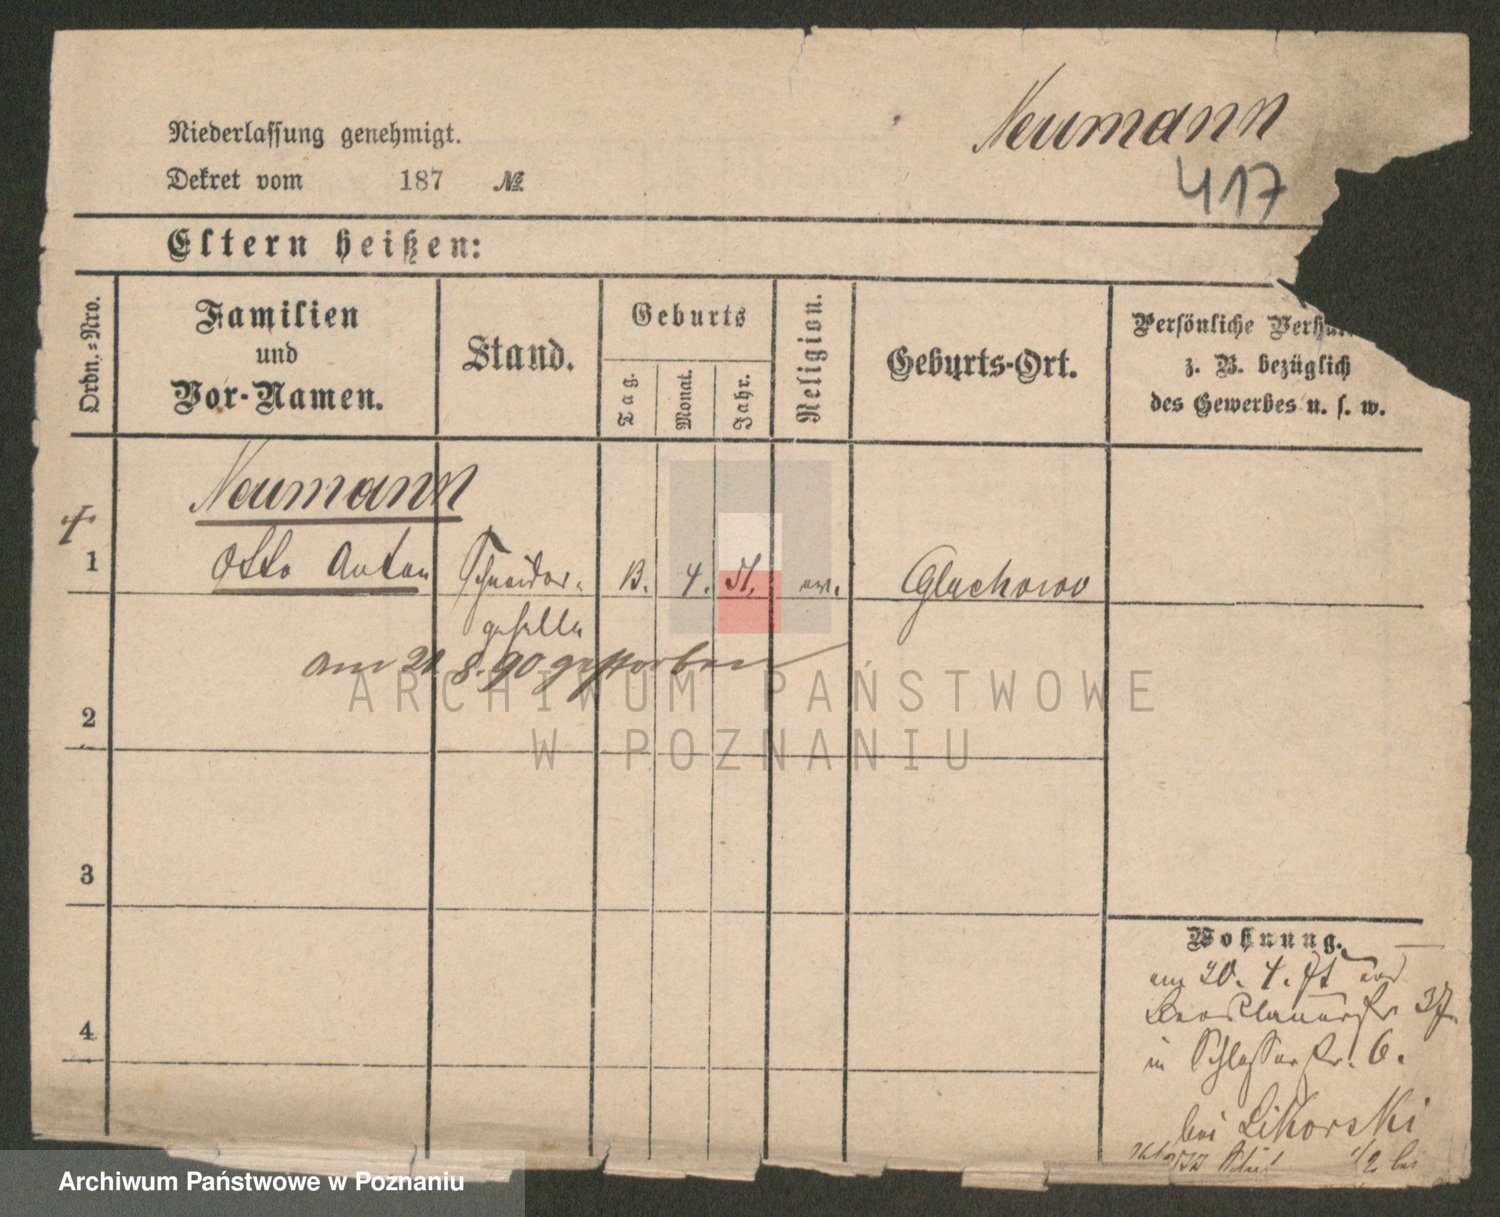 Neumann
417
Niederlassung genehmigt.
Dekret vom 187 №
Eltern heißen:
Ordn.-Nro.
Familien
und
Vor-Namen.
Stand.
Geburts
Tag.
Monat.
Jahr.
Religion.
Geburts-Ort.
Persönliche Verhä
z. B. bezüglich
des Gewerbes u. s. w.
Neumann
1 Otto Anton Schneider- 4. ev. Gluchowo
geselle
am 8. 90 gestorben
2
3
4
ARCHIWUM PAŃSTWOWE
W POZNANIU
Wohnung.
am 20. 4.
Breslauerstr 37
in Schlosserstr. 6.
bei Sikorski
1/2 bei
Archiwum Państwowe w Poznaniu